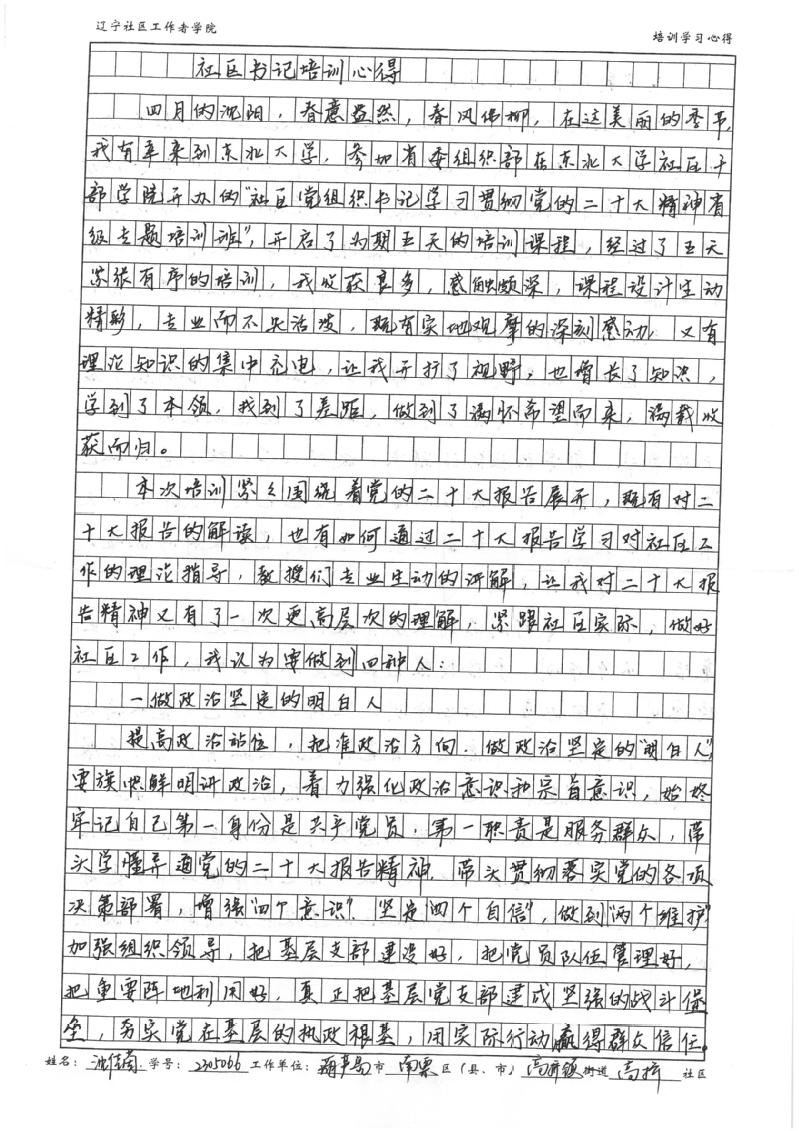 辽宁社区工作者学院 培训学习心得
社区书记培训心得
四月的沈阳，春意盎然，春风佛柳，在这美丽的季节，
我有幸来到东北大学，参加省委组织部在东北大学社区干
部学院开办的“社区党组织书记学习贯彻党的二十大精神省
级专题培训班”，开启了为期五天的培训课程，经过了五天
紧张有序的培训，我收获良多，感触颇深，课程设计生动
精彩，专业而不失活泼，既有实地观摩的深刻感动，又有
理论知识的集中充电，让我开拧了视野，也增长了知识，
学到了本领，找到了差距，做到了满怀希望而来，满载收
获而归。
本次培训紧紧围绕着党的二十大报告展开，既有对二
十大报告的解读，也有如何通过二十大报告学习对社区工
作的理论指导，教授们专业生动的讲解，让我对二十大报
告精神又有了一次更高层次的理解，紧跟社区实际，做好
社区工作，我认为要做到四种人：
一做政治坚定的明白人
提高政治站位，把准政治方向．做政治坚定的“明白人”，
要旗帜鲜明讲政治，着力强化政治意识和宗旨意识，始终
牢记自己第一身份是共产党员，第一职责是服务群众，带
头学懂弄通党的二十大报告精神．带头贯彻落实党的各项
决策部署，增强“四个意识”．坚定“四个自信”，做到“两个维护”
加强组织领导，把基层支部建设好，把党员队伍管理好，
把重要阵地利用好，真正把基层党支部建成坚强的战斗堡
垒，夯实党在基层的执政根基，用实际行动赢得群众信任。
姓名： 学号：2305066 工作单位：葫芦岛市 南票区（县、市） 街道 社区